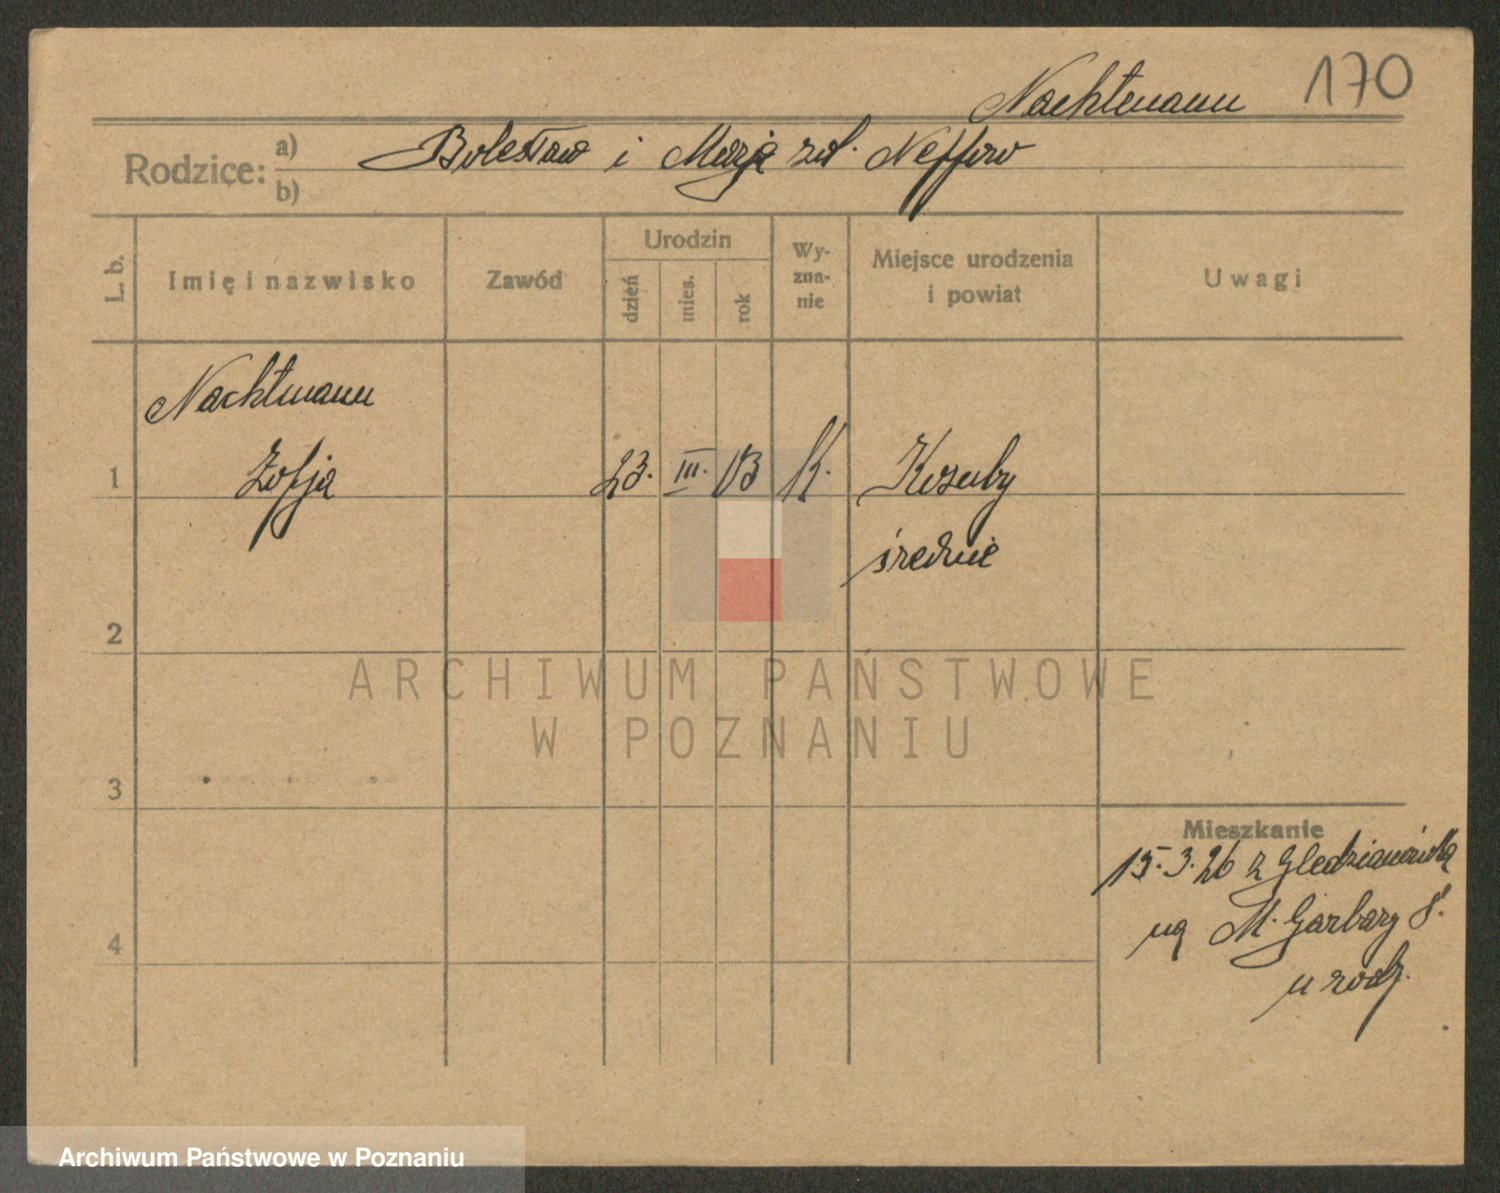 170
Nachtmann
Rodzice: a) Bolesław i Marja zd. Neffów
b)
L. b.
Imię i nazwisko
Zawód
Urodzin
dzień
mies.
rok
Wy-
zna-
nie
Miejsce urodzenia
i powiat
Uwagi
Nachtmann
1 Zofja 23. III. 03 K. Kozuby
średnie
2
ARCHIWUM PAŃSTWOWE
W POZNANIU
3
Mieszkanie
15.3.26 z Gledzianówka
4
na M. Garbary 8.
u rodz.
Archiwum Państwowe w Poznaniu